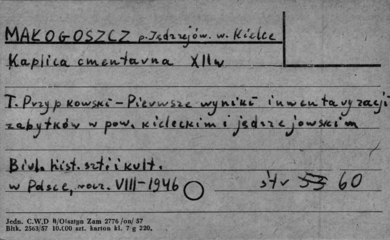 MAŁOGOSZCZ p. Jędrzejów. w. Kielce
Kaplica cmentarna XII w
T. Przypkowski – Pierwsze wyniki inwentaryzacji
zabytków w pow. kieleckim i jędrzejowskim
Biul. hist. szt. i kult.
w Polsce, rocz. VIII–1946 str 55 60
Jedn. C.W.D 8/Olsztyn Zam 2776/on/57
Bhk. 2563/57 10.000 szt. karton kl. 7 g 220,